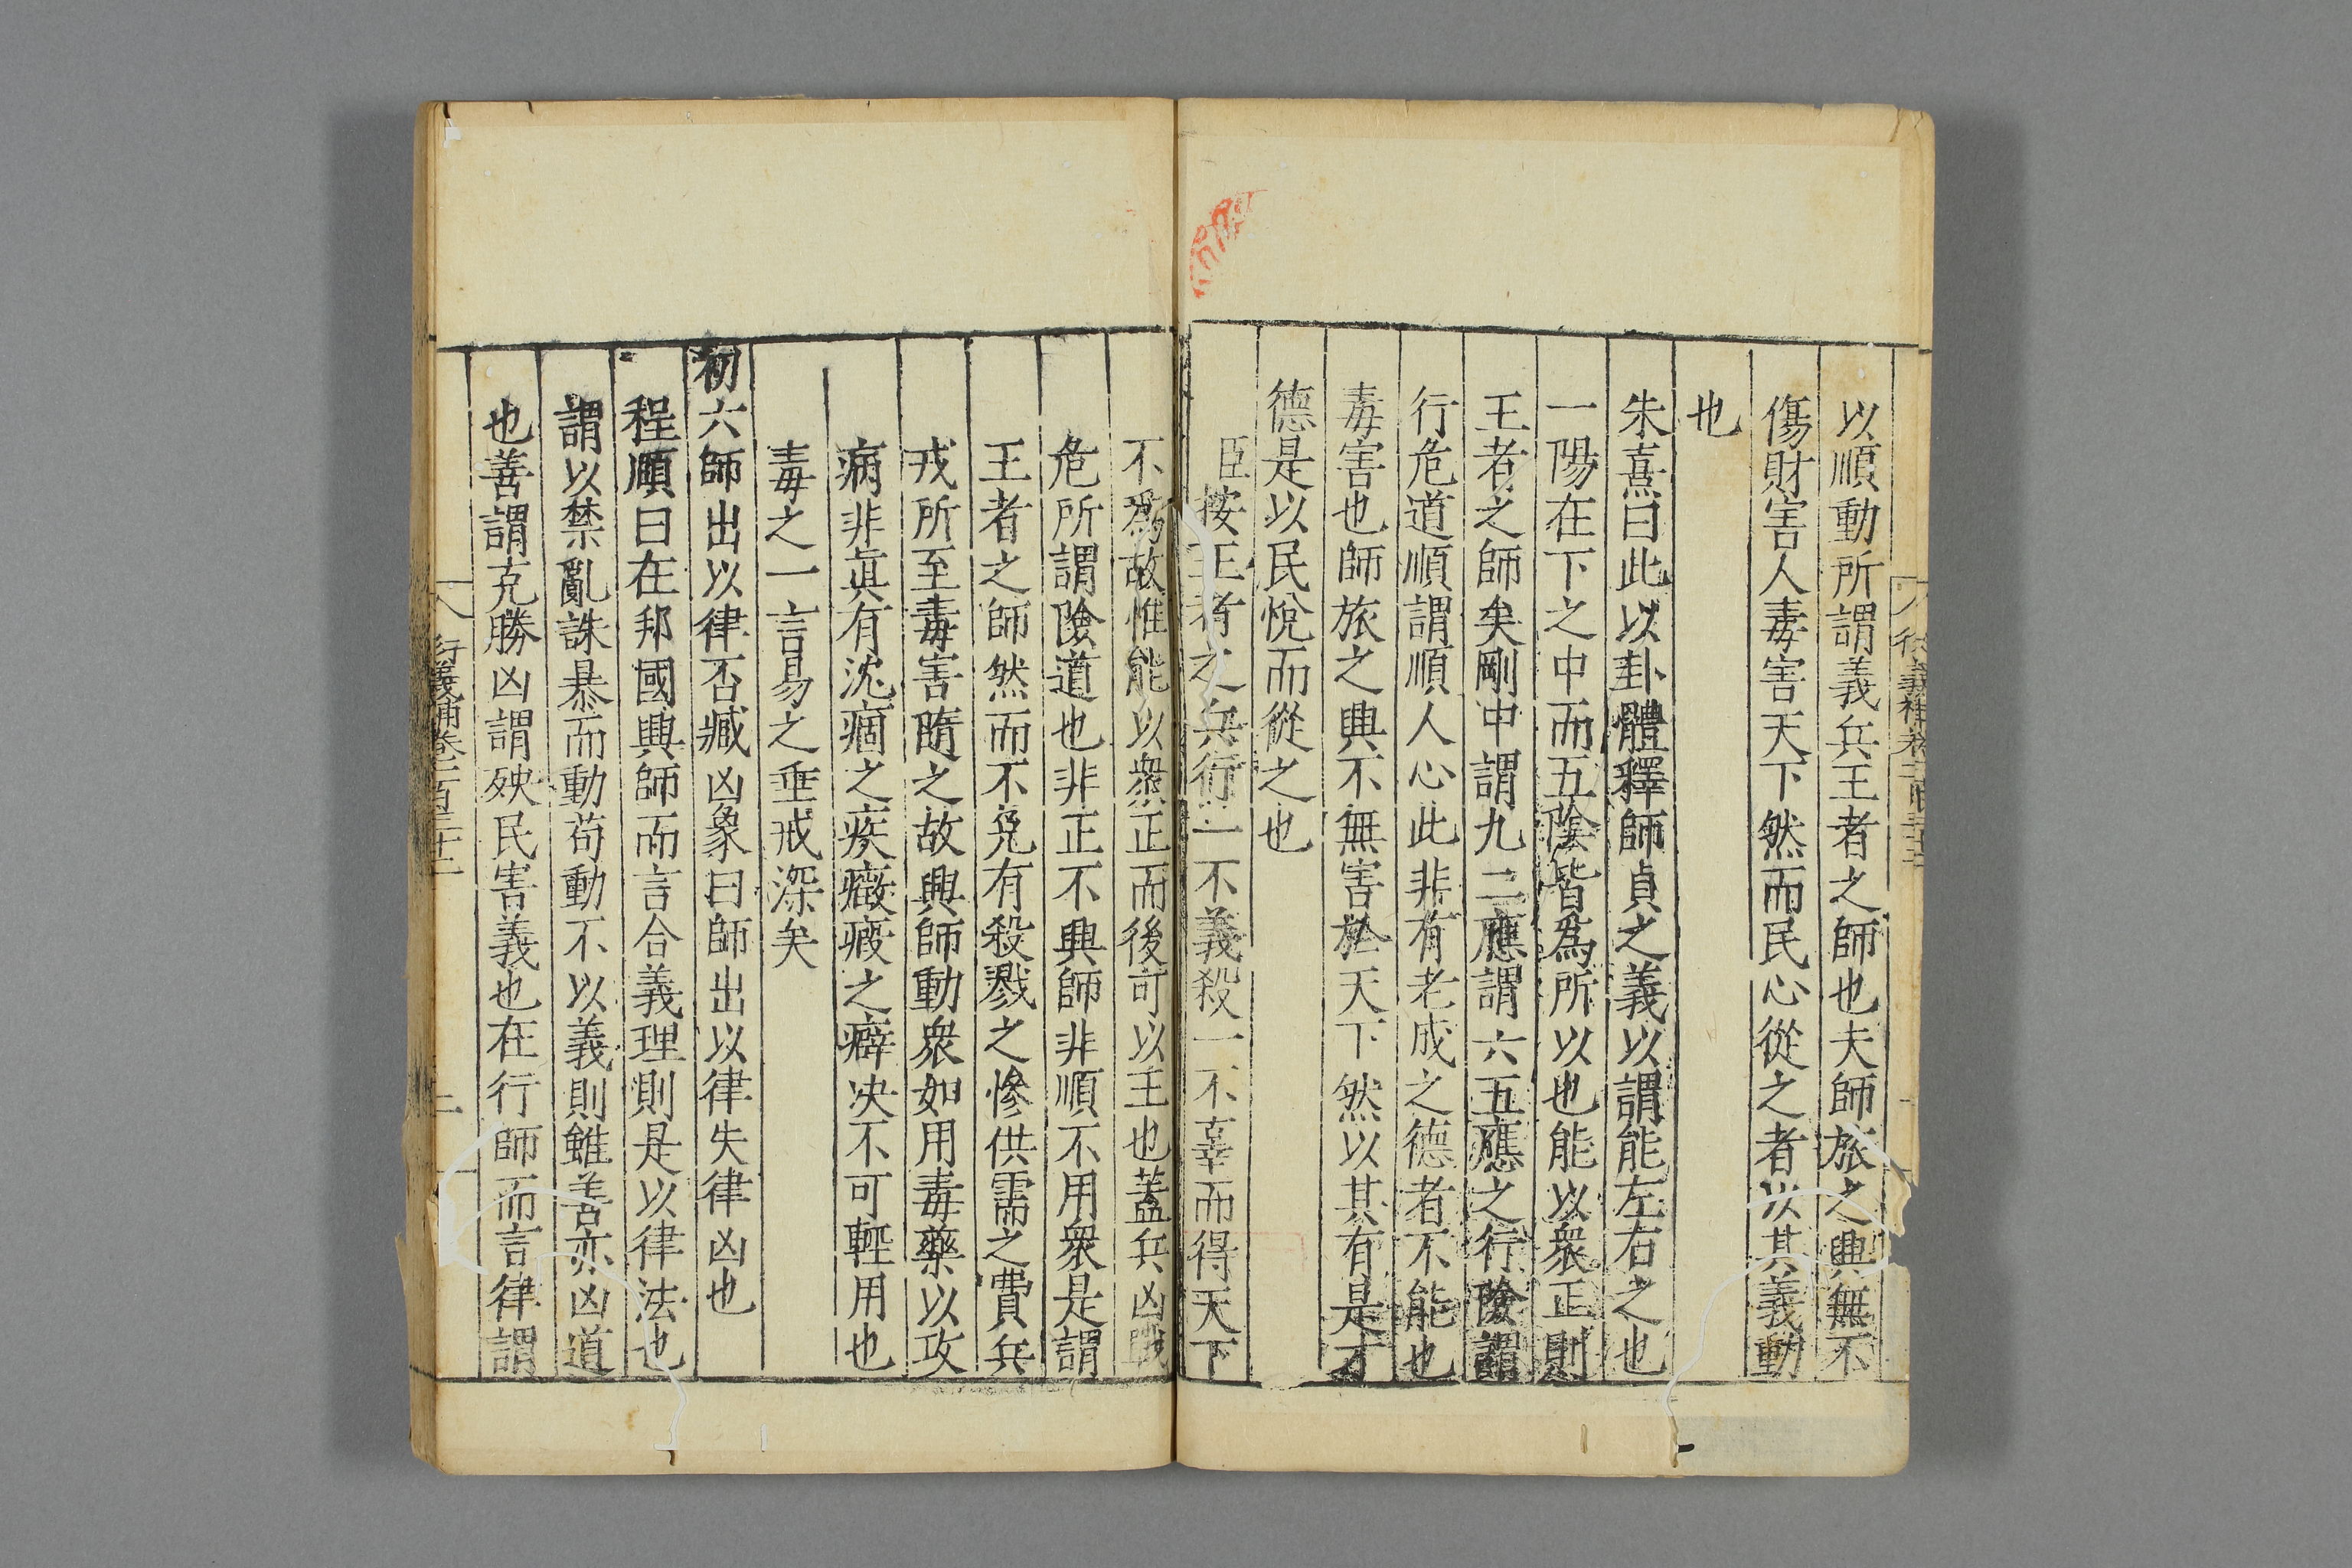 以順動所謂義兵王者之師也夫師旅之興無不
傷財害人毒害天下然而民心從之者以其義動
也
朱熹曰此以卦體釋師貞之義以謂能左右之也
一陽在下之中而五陰皆爲所以也能以衆正則
王者之師矣剛中謂九二應謂六五應之行險謂
行危道順謂順人心此非有老成之德者不能也
毒害也師旅之興不無害於天下然以其有是才
德是以民悅而從之也
臣按王者之兵行一不義殺一不辜而得天下
不爲故惟能以衆正而後可以王也蓋兵凶戰
危所謂險道也非正不興師非順不用衆是謂
王者之師然而不免有殺戮之慘供需之費兵
戎所至毒害隨之故興師動衆如用毒藥以攻
病非眞有沈痼之疾癥瘕之癖决不可輕用也
毒之一言易之垂戒深矣
初六師出以律否臧凶象曰師出以律失律凶也
程頤曰在邦國興師而言合義理則是以律法也
謂以禁亂誅暴而動苟動不以義則雖善亦凶道
也善謂克勝凶謂殃民害義也在行師而言律謂